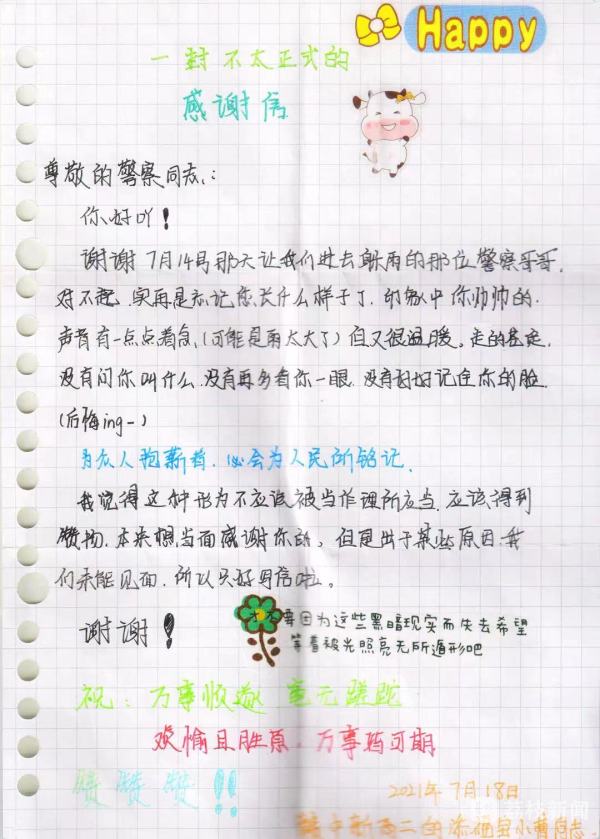 Happy
一封不太正式的
感谢信
尊敬的警察同志：
你好吖！
谢谢7月14号那天让我们进去躲雨的那位警察哥哥，
对不起，实再是忘记您长什么样子了，印象中你帅帅的，
声音有一点点着急，（可能是雨太大了）但又很温暖。走的着急，
没有问你叫什么，没有再多看你一眼，没有好好记住你的脸
（后悔ing~）
为众人抱薪者，必会为人民所铭记，
我觉得这种形为不应该被当作理所应当，应该得到
赞扬，本来想当面感谢你的，但是出于某些原因，我
们未能见面，所以只好写信啦。
谢谢！
不要因为这些黑暗现实而失去希望
等着被光照亮无所遁形吧
祝：万事收敛 毫无蹉跎
欢愉且胜意，万事皆可期
赞赞赞！！
2021年7月18日
荔枝新闻